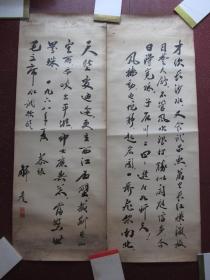 才饮长沙水又食武昌鱼万里长江横渡极
目楚天舒不管风吹浪打胜似闲庭信步今
日得宽余子在川上曰逝者如斯夫
风樯动龟蛇静起宏图一桥飞架南北
天堑变通途更立西江石壁截断巫山
云雨高峡出平湖神女应无恙当惊世
界殊 一九六八年 恭录
毛主席水调歌头